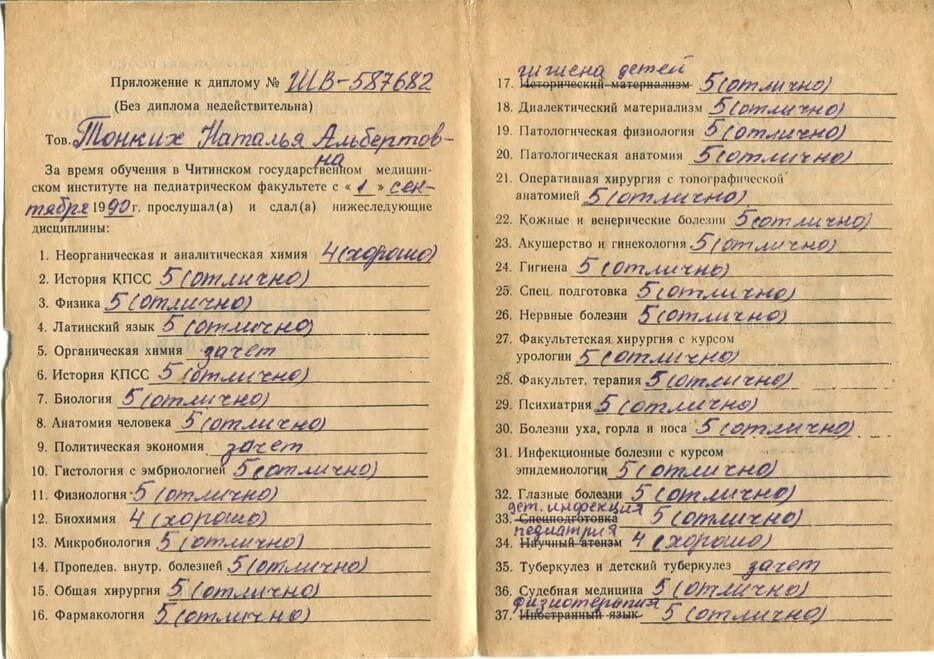 Приложение к диплому № ШВ-587682
(Без диплома недействительна)
Тов. Тонких Наталья Альбертов-
на
За время обучения в Читинском государственном медицин-
ском институте на педиатрическом факультете с «1» сен-
тября 1990 г. прослушал(а) и сдал(а) нижеследующие
дисциплины:
1. Неорганическая и аналитическая химия 4 (хорошо)
2. История КПСС 5 (отлично)
3. Физика 5 (отлично)
4. Латинский язык 5 (отлично)
5. Органическая химия зачет
6. История КПСС 5 (отлично)
7. Биология 5 (отлично)
8. Анатомия человека 5 (отлично)
9. Политическая экономия зачет
10. Гистология с эмбриологией 5 (отлично)
11. Физиология 5 (отлично)
12. Биохимия 4 (хорошо)
13. Микробиология 5 (отлично)
14. Пропедев. внутр. болезней 5 (отлично)
15. Общая хирургия 5 (отлично)
16. Фармакология 5 (отлично)
гигиена детей
17. Исторический материализм 5 (отлично)
18. Диалектический материализм 5 (отлично)
19. Патологическая физиология 5 (отлично)
20. Патологическая анатомия 5 (отлично)
21. Оперативная хирургия с топографической
анатомией 5 (отлично)
22. Кожные и венерические болезни 5 (отлично)
23. Акушерство и гинекология 5 (отлично)
24. Гигиена 5 (отлично)
25. Спец. подготовка 5 (отлично)
26. Нервные болезни 5 (отлично)
27. Факультетская хирургия с курсом
урологии 5 (отлично)
28. Факультет. терапия 5 (отлично)
29. Психиатрия 5 (отлично)
30. Болезни уха, горла и носа 5 (отлично)
31. Инфекционные болезни с курсом
эпидемиологии 5 (отлично)
32. Глазные болезни 5 (отлично)
дет. инфекция
33. Спецподготовка 5 (отлично)
педиатрия
34. Научный атеизм 4 (хорошо)
35. Туберкулез и детский туберкулез зачет
36. Судебная медицина 5 (отлично)
физиотерапия
37. Иностранный язык 5 (отлично)